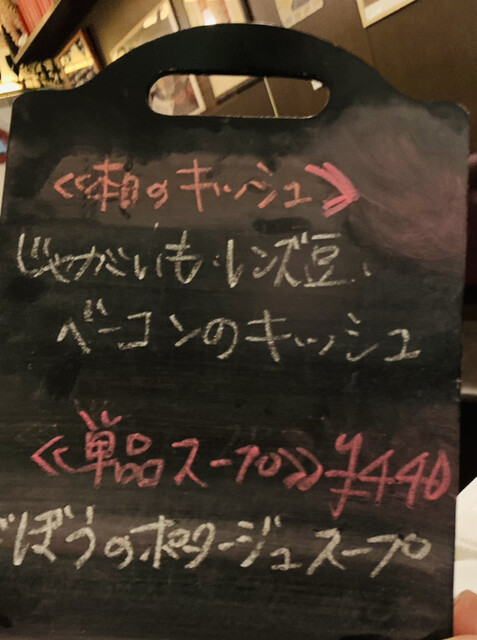 ≪本日のキッシュ≫
じゃがいも・レンズ豆・
ベーコンのキッシュ
≪単品スープ≫¥440
ごぼうのポタージュスープ